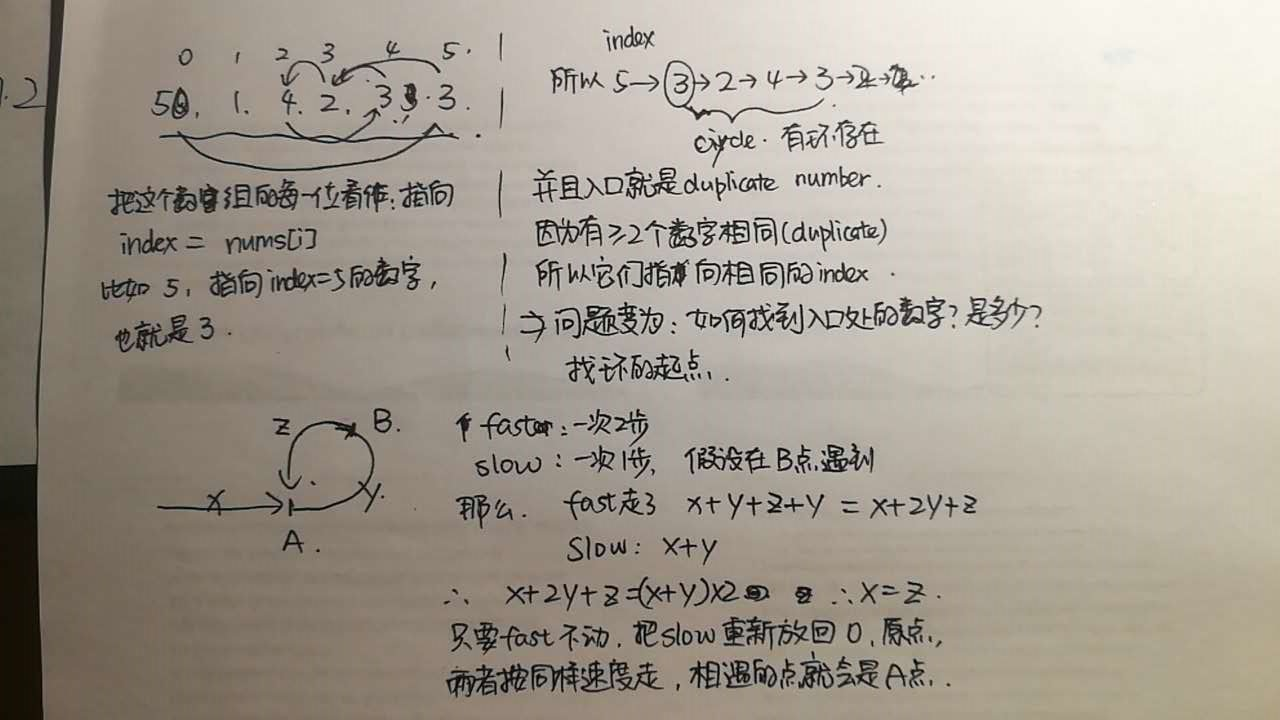 1.2
0 1 2 3 4 5.
5, 1. 4. 2. 3 3.
把这个数组的每一位看作:指向
index = nums[i]
比如 5, 指向index=5的数字,
也就是3.
index
所以 5→3→2→4→3→2→4..
circle. 有环存在
并且入口就是duplicate number.
因为有≥2个数字相同(duplicate)
所以它们指向相同的index.
⇒ 问题变为: 如何找到入口处的数字? 是多少?
找环的起点.
Z B.
X Y.
A.
fast: 一次2步
slow: 一次1步, 假设在B点遇到
那么. fast走了 x+y+z+y = x+2y+z
slow: x+y
∴ x+2y+z=(x+y)x2 ∴x=z.
只要fast不动, 把slow重新放回0, 原点,
两者按同样速度走, 相遇的点就会是A点.